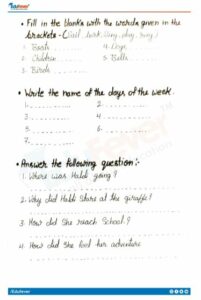 Edufever
• Fill in the blanks with the words given in the
brackets - (sail, bark, day, ring)
1. Boats ............ 4. Dogs ............
2. Children ............ 5. Bells ............
3. Birds ............
• Write the name of the days of the week.
1. ............ 2. ............
3. ............ 4. ............
5. ............ 6. ............
7. ............
• Answer the following question:-
1. Where was Haldi going?
2. Why did Haldi stare at the giraffe?
3. How did she reach School?
4. How did She feel her adventure
/Edufever